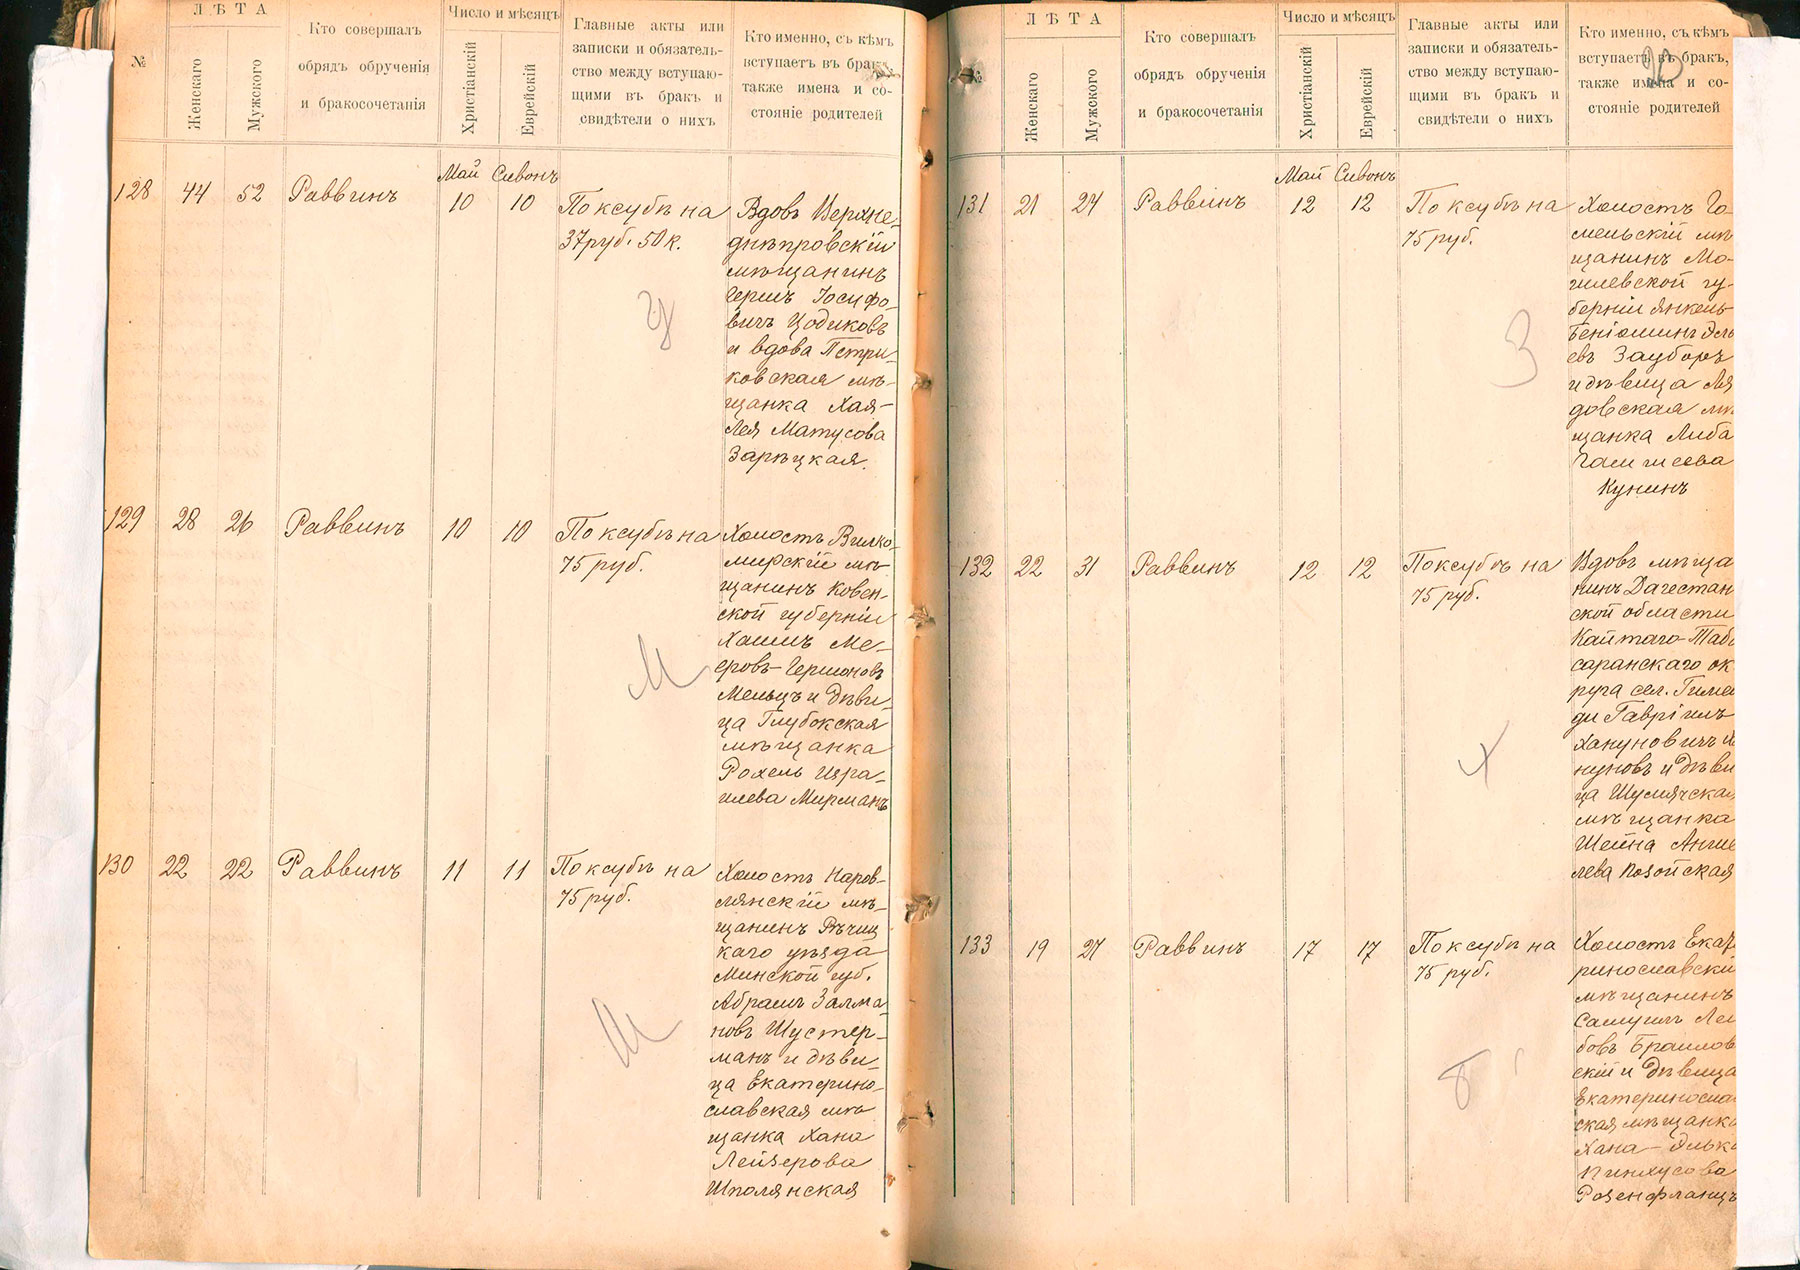 №
ЛѢТА
Женскаго
Мужского
Кто совершалъ
обрядъ обрученія
и бракосочетанія
Число и мѣсяцъ
Христіанскій
Еврейскій
Главные акты или
записки и обязатель-
ство между вступаю-
щими въ бракъ и
свидѣтели о нихъ
Кто именно, съ кѣмъ
вступаетъ въ бракъ,
также имена и со-
стояніе родителей
Май Сивонъ
128 44 52 Раввинъ 10 10
По ксубѣ на
37 руб. 50 к.
Ц
Вдовъ Верхне-
днѣпровскій
мѣщанинъ
Гершъ Іосифо-
вичъ Цодиковъ
и вдова Петри-
ковская мѣ-
щанка Хая-
Лея Матусова
Зарѣцкая.
129 28 26 Раввинъ 10 10
По ксубѣ на
75 руб.
М
Холостъ Вилко-
мирскій мѣ-
щанинъ Ковен-
ской губерніи
Хаимъ Ме-
еровъ-Гершоновъ
Мельцъ и дѣви-
ца Глубокская
мѣщанка
Рохель Изра-
илева Мирманъ
130 22 22 Раввинъ 11 11
По ксубѣ на
75 руб.
Ш
Холостъ Наров-
лянскій мѣ-
щанинъ Рѣчиц
каго уѣзда
Минской губ.
Абрамъ Залма-
новъ Шустер-
манъ и дѣви-
ца Екатерино-
славская мѣ
щанка Хана
Лейзерова
Шполянская
№
ЛѢТА
Женскаго
Мужского
Кто совершалъ
обрядъ обрученія
и бракосочетанія
Число и мѣсяцъ
Христіанскій
Еврейскій
Главные акты или
записки и обязатель-
ство между вступаю-
щими въ бракъ и
свидѣтели о нихъ
Кто именно, съ кѣмъ
вступаетъ въ бракъ,
также имена и со-
стояніе родителей
Май Сивонъ
131 21 24 Раввинъ 12 12
По ксубѣ на
75 руб.
З
Холостъ Го-
мельскій мѣ
щанинъ Мо-
гилевской гу-
берніи Янкель-
Беніоминъ Эль
евъ Зауборъ
и дѣвица Ля
довская мѣ
щанка Либа
Кунинъ
132 22 31 Раввинъ 12 12
По ксубѣ на
75 руб.
Х
Вдовъ мѣща
нинъ Дагестан
ской области
Кайтаго-Таба
саранскаго ок
руга сел.
ди Гавріилъ
Хануновичъ Ха
нуновъ и дѣви
ца Шумячская
мѣщанка
Шейна
лева
133 19 24 Раввинъ 17 17
По ксубѣ на
75 руб.
Б
Холостъ Екат
ринославскій
мѣщанинъ
Самуилъ Лей
бовъ Браилов
скій и дѣвица
Екатеринослав
ская мѣщанка
Хана-Элька
Пинхусова
Розенфланцъ